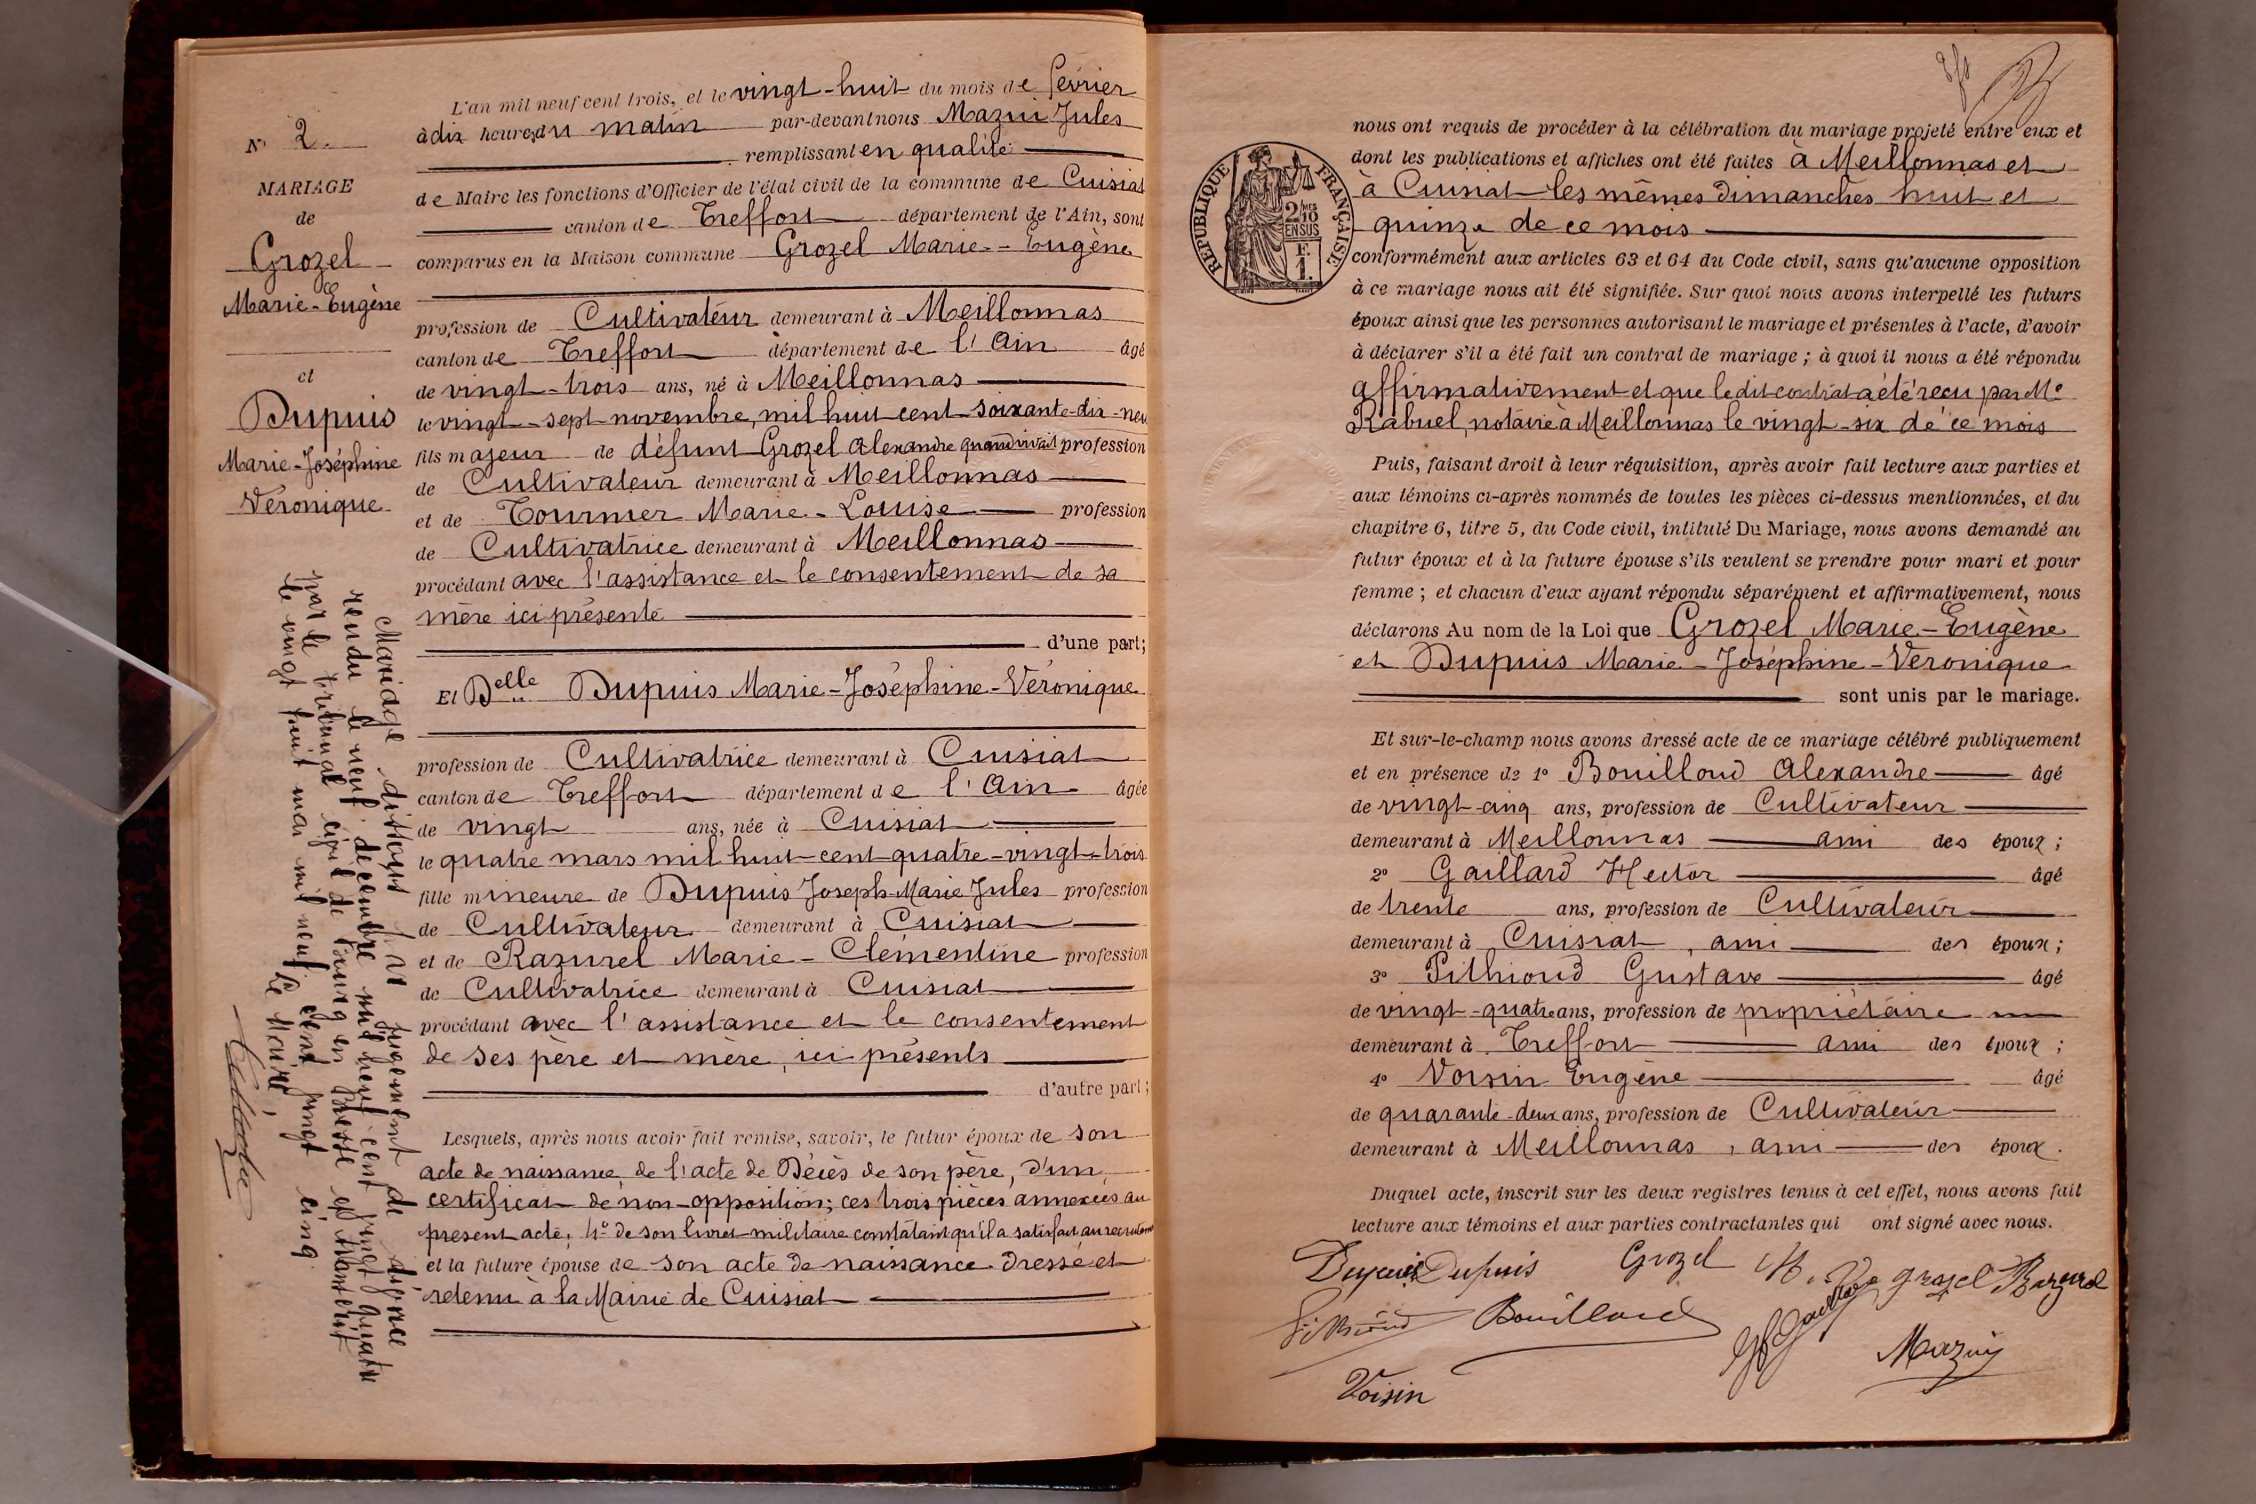 N° 2.
MARIAGE
de
Grozel
Marie-Eugène
et
Dupuis
Marie-Joséphine
Véronique
Mariage dissous par jugement de divorce
rendu le neuf décembre mil neuf cent vingt quatre
par le tribunal civil de Bourg en Bresse et transcrit
le vingt huit mai mil neuf cent vingt cinq.
Le Maire,
L'an mil neuf cent trois, et le vingt-huit du mois de février
à dix heures du matin par-devant nous Mazuy Jules
remplissant en qualité
de Maire les fonctions d'Officier de l'état civil de la commune de Cuisiat
canton de Treffort département de l'Ain, sont
comparus en la Maison commune Grozel Marie-Eugène
profession de Cultivateur demeurant à Meillonnas
canton de Treffort département de l'Ain âgé
de vingt-trois ans, né à Meillonnas
le vingt-sept novembre, mil huit cent soixante-dix-neu
fils majeur de défunt Grozel Alexandre quand vivait profession
de Cultivateur demeurant à Meillonnas
et de Tournier Marie-Louise profession
de Cultivatrice demeurant à Meillonnas
procédant avec l'assistance et le consentement de sa
mère ici présente
d'une part;
Et Delle Dupuis Marie-Joséphine-Véronique
profession de Cultivatrice demeurant à Cuisiat
canton de Treffort département de l'Ain âgée
de vingt ans, née à Cuisiat
le quatre mars mil huit-cent-quatre-vingt-trois
fille mineure de Dupuis Joseph-Marie Jules profession
de Cultivateur demeurant à Cuisiat
et de Razurel Marie-Clémentine profession
de Cultivatrice demeurant à Cuisiat
procédant avec l'assistance et le consentement
de ses père et mère, ici présents
d'autre part;
Lesquels, après nous avoir fait remise, savoir, le futur époux de son
acte de naissance, de l'acte de Décès de son père, d'un
certificat de non-opposition; ces trois pièces annexées au
présent acte; 4° de son livret militaire constatant qu'il a satisfait au recrutem
et la future épouse de son acte de naissance dressé et
retenu à la Mairie de Cuisiat
RÉPUBLIQUE FRANÇAISE
2/10MES
EN SUS
F.
1.
nous ont requis de procéder à la célébration du mariage projeté entre eux et
dont les publications et affiches ont été faites à Meillonnas et
à Cuisiat les mêmes dimanches huit et
quinze de ce mois
conformément aux articles 63 et 64 du Code civil, sans qu'aucune opposition
à ce mariage nous ait été signifiée. Sur quoi nous avons interpellé les futurs
époux ainsi que les personnes autorisant le mariage et présentes à l'acte, d'avoir
à déclarer s'il a été fait un contrat de mariage; à quoi il nous a été répondu
affirmativement et que ledit contrat a été reçu par Me
Rabuel, notaire à Meillonnas le vingt-six de ce mois
Puis, faisant droit à leur réquisition, après avoir fait lecture aux parties et
aux témoins ci-après nommés de toutes les pièces ci-dessus mentionnées, et du
chapitre 6, titre 5, du Code civil, intitulé Du Mariage, nous avons demandé au
futur époux et à la future épouse s'ils veulent se prendre pour mari et pour
femme; et chacun d'eux ayant répondu séparément et affirmativement, nous
déclarons Au nom de la Loi que Grozel Marie-Eugène
et Dupuis Marie-Joséphine-Véronique
sont unis par le mariage.
Et sur-le-champ nous avons dressé acte de ce mariage célébré publiquement
et en présence de 1° Bouilloud Alexandre âgé
de vingt-cinq ans, profession de Cultivateur
demeurant à Meillonnas ami des époux;
2° Gaillard Hector âgé
de trente ans, profession de Cultivateur
demeurant à Cuisiat, ami des époux;
3° Pithioud Gustave âgé
de vingt-quatre ans, profession de propriétaire
demeurant à Treffort ami des époux;
4° Voisin Eugène âgé
de quarante-deux ans, profession de Cultivateur
demeurant à Meillonnas, ami des époux.
Duquel acte, inscrit sur les deux registres tenus à cet effet, nous avons fait
lecture aux témoins et aux parties contractantes qui ont signé avec nous.
Dupuis Dupuis Grozel M. Vve Grozel Razurel
Pithioud Bouilloud H Gaillard Mazuy
Voisin